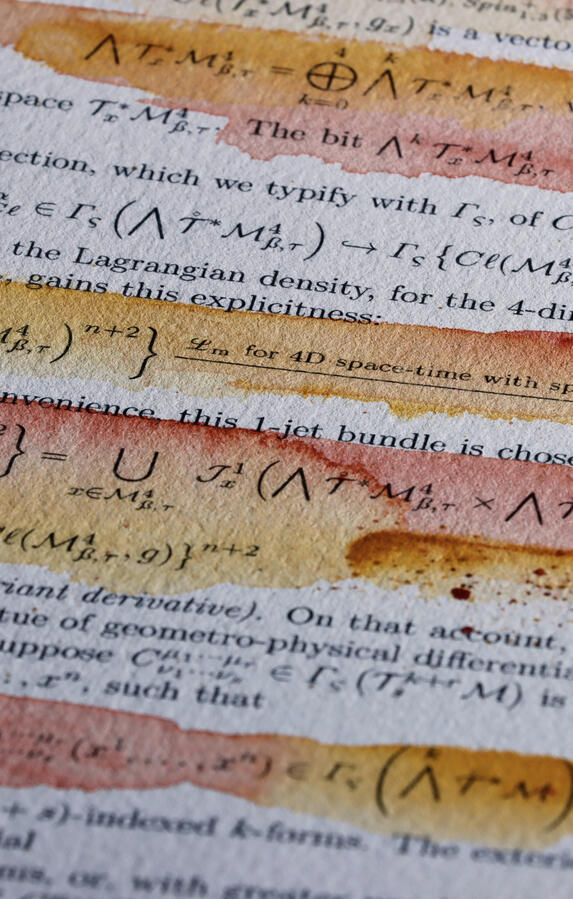 (T*ₓM⁴_{β,τ}, gₓ) is a vecto
⋀T*ₓM⁴_{β,τ} = ⊕_{k=0}^{4} ⋀ᵏ T*ₓM⁴_{β,τ},
space T*ₓM⁴_{β,τ}. The bit ⋀ᵏ T*ₓM⁴_{β,τ}
ection, which we typify with Γ_ς, of C
ℓ ∈ Γ_ς (⋀ T̊*M⁴_{β,τ}) ↪ Γ_ς {Cℓ(M⁴_{β,
the Lagrangian density, for the 4-di
, gains this explicitness:
M⁴_{β,τ})ⁿ⁺²} ℒₘ for 4D space-time with sp
nvenience, this 1-jet bundle is chose
} = ⋃_{x∈M⁴_{β,τ}} J¹ₓ (⋀ T̊*M⁴_{β,τ} × ⋀ T
ℓ(M⁴_{β,τ}, g)}ⁿ⁺²
riant derivative). On that account,
tue of geometro-physical differentia
uppose C^{μ₁⋯μᵣ}_{ν₁⋯νₛ} ∈ Γ_ς (T^{k+r}_s M) is
, xⁿ, such that
(x¹, . . . , xⁿ) ∈ Γ_ς (⋀ᵏ T*M)
+ s)-indexed k-forms. The exteri
ial
or, with greater